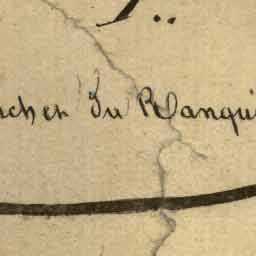 ucher du Ranqui